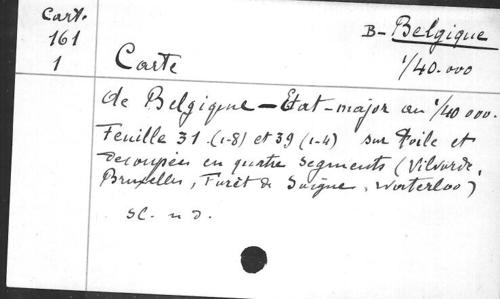 Cart.
161
1
B- Belgique
1/40.000
Carte
de Belgique - Etat-major au 1/40 000.
Feuille 31 (1-8) et 39 (1-4) sur toile et
decoupées en quatre segments (Vilvorde,
Bruxelles, Forêt de Soigne, Waterloo)
sl. n d.